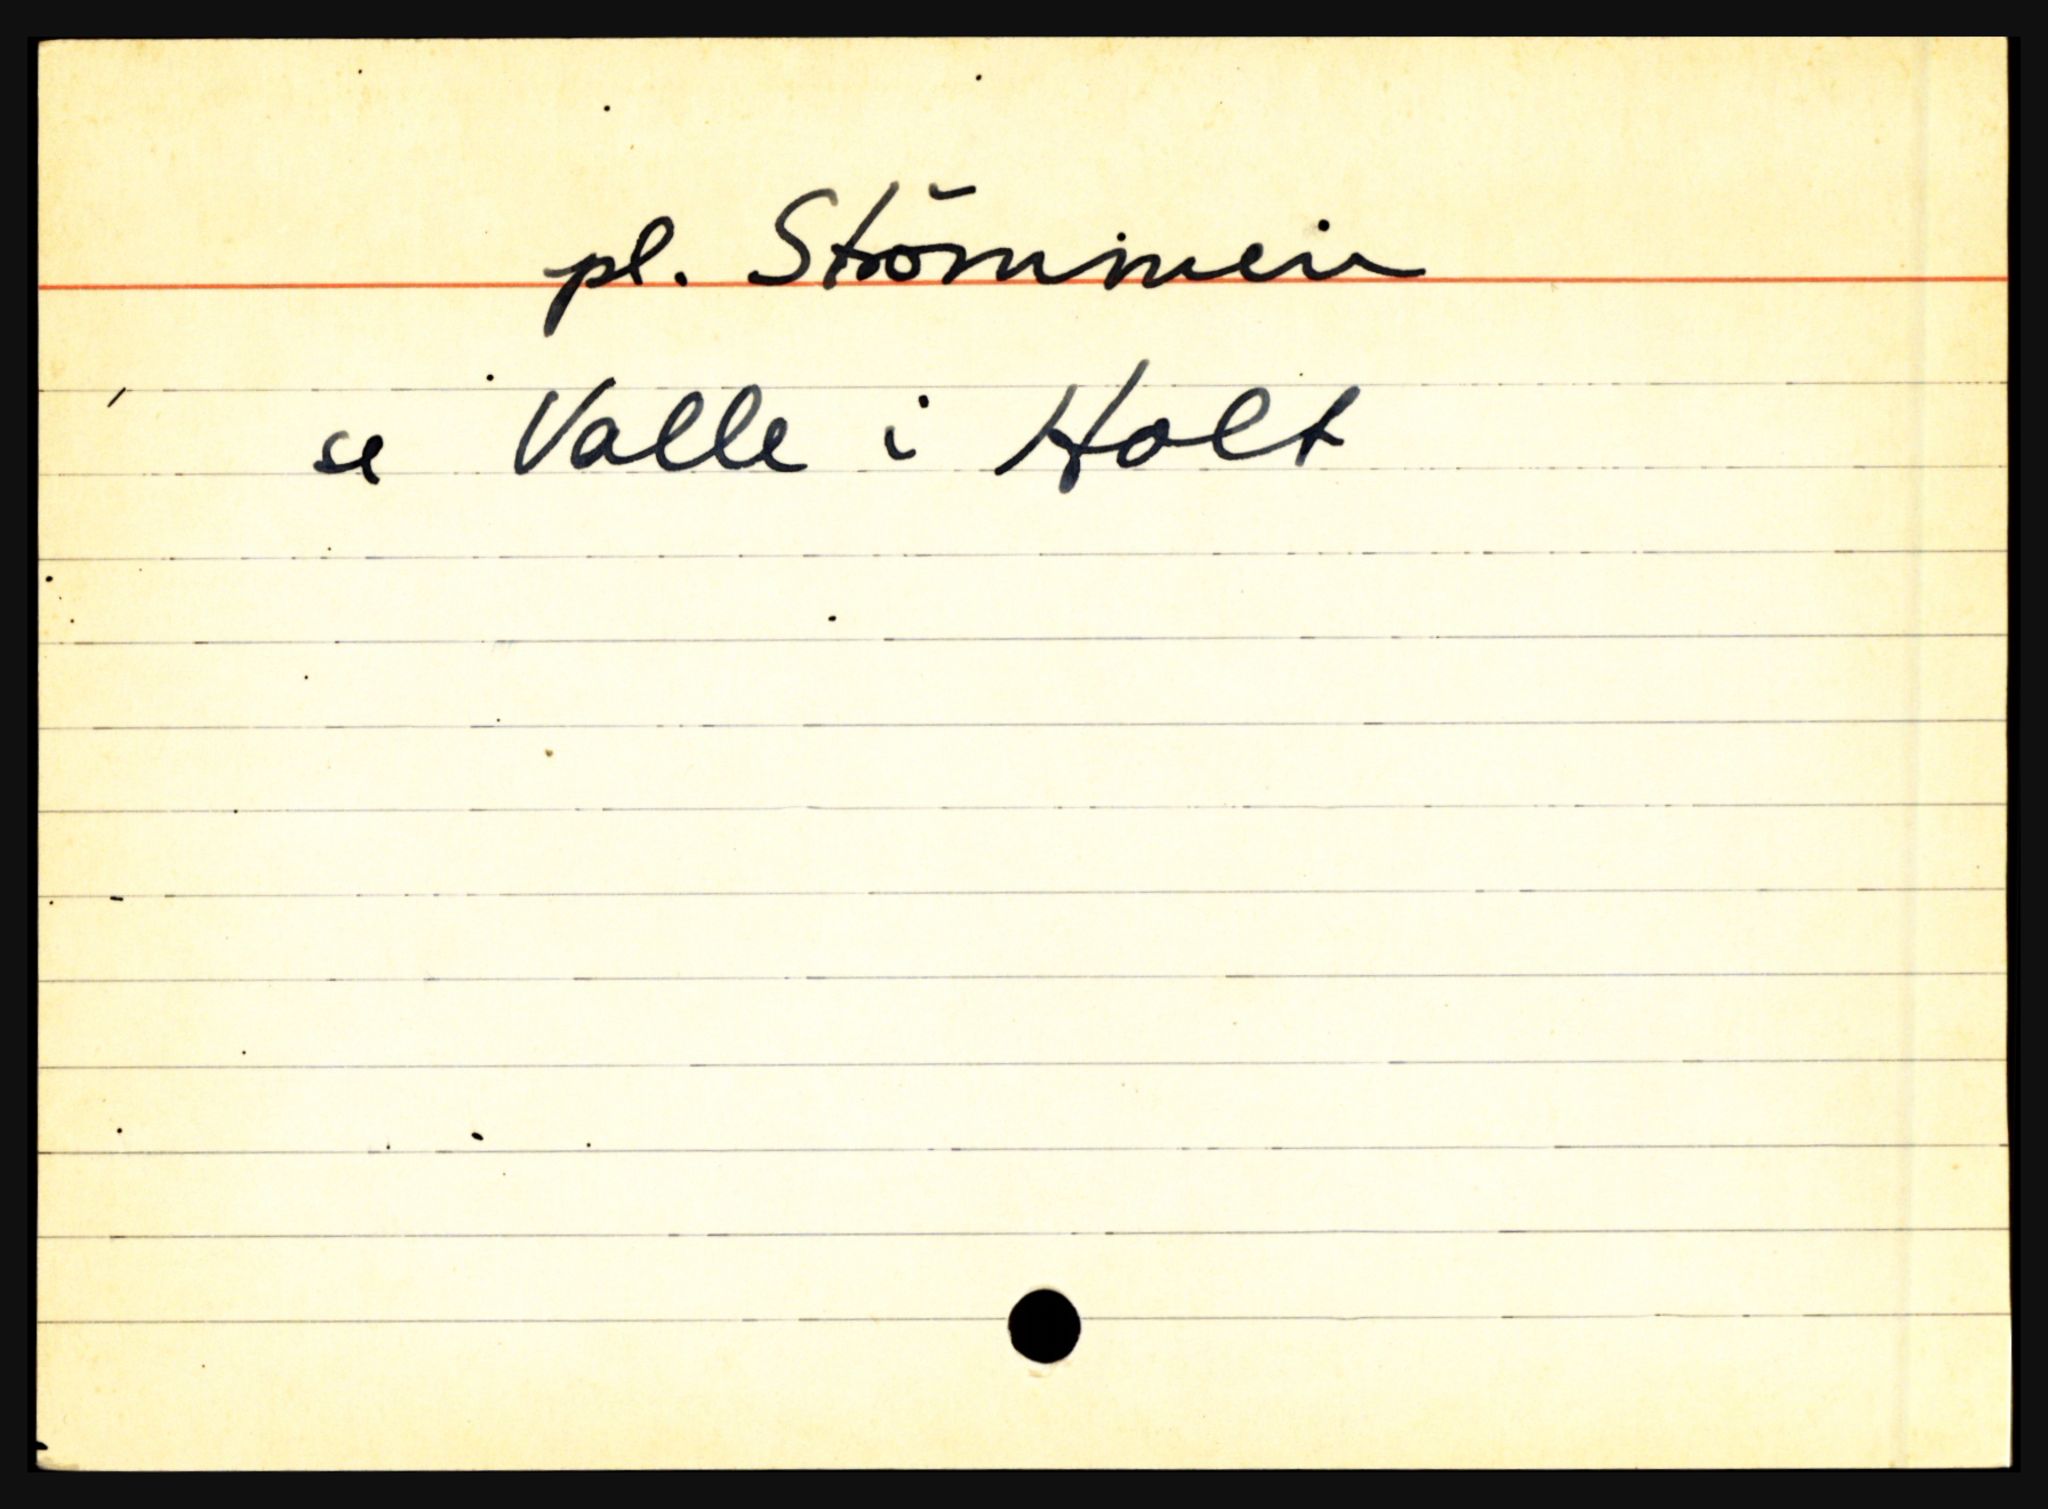 pl. Strömmen
se Valle i Holt